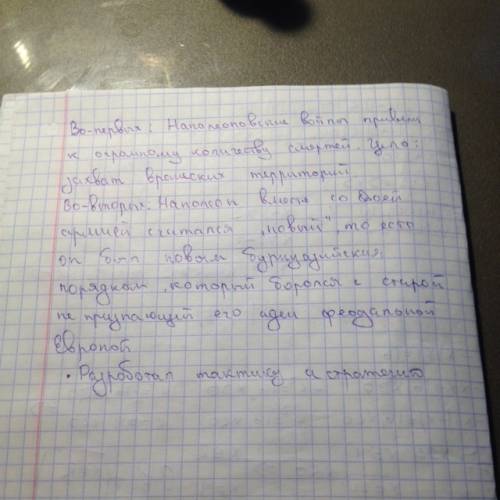 Во-первых: Наполеоновские войны привели
к огромному количеству смертей. Цель:
захват вражеских территорий.
Во-вторых. Наполеон вместе со своей
армией считался "новый", то есть
он был новым буржуазийским
порядком, который боролся с старой
не принимающий его идеи феодальной
Европой
• Разроботал тактику и стратегию